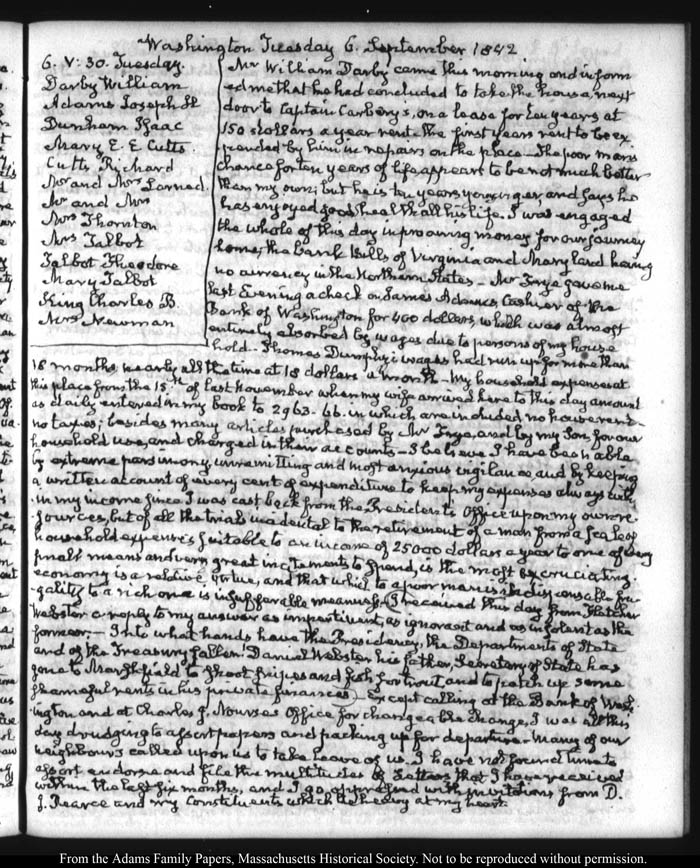 Washington Tuesday 6. September 1842
6. V: 30. Tuesday.
Darby William
Adams Joseph H
Dunham Isaac
Mary E. E Cutts.
Cutts Richard
Mr and Mrs Larned.
Mr and Mrs
Mrs Thornton
Mrs Talbot
Talbot Theodore
Mary Talbot
King Charles B.
Mrs Newman
Mr William Darby came this morning and inform
ed me that he had concluded to take the house, next
door to Captain Carbery's, on a lease for ten years at
150 dollars a year rent. The first years rent to be ex
pended by him in repairs on the place — The poor man's
chance for ten years of life appears to be not much better
than my own; but he is ten years younger, and says he
has enjoyed good health all his life. I was engaged
the whole of this day in procuring money for our journey
home; the bank Bills of Virginia and Maryland having
no currency in the Northern States — Mr Frye gave me
last Evening a check on James Adams, Cashier of the
Bank of Washington for 400 dollars, which was almost
entirely absorbed by wages due to persons of my house
hold — Thomas Dumphy's wages had run up for more than
18 months nearly all the time at 18 dollars a month — My household expenses at
this place from the 15.th of last November when my wife arrived here to this day amount
as daily entered in my book to 2963.66. in which are included no house rent —
no taxes; besides many articles purchased by Mr Frye, and by my Son, for our
household use, and charged in their accounts — I believe I have been able
by extreme parsimony, unremitting and most anxious vigilance, and by keeping
a written account of every cent of expenditure to keep my expenses always with
in my income since I was cast back from the Presidents Office upon my own re-
sources, but of all the trials incidental to the retirement of a man from a scale of
household expenses suitable to an income of 25000 dollars a year to one of very
small means and very great incitements to spend, is the most excruciating.
economy is a relative virtue, and that which to a poor man is indispensable fru
gality to a rich one is insufferable meanness. I received this day from Fletcher
Webster a reply to my answer as impertinent, as ignorant and as insolent as the
former. — Into what hands have the Presidency, the Departments of State
and of the Treasury fallen! Daniel Webster his father, Secretary of State has
gone to Marshfield to shoot snipes and fish for trout and to patch up some
shameful rents in his private finances. Except calling at the Bank of Wash
ington and at Charles J. Nourse's Office for changeable change, I was all this
day drudging to assort papers and packing up for departure. Many of our
neighbours called upon us to take leave of us. I have not found time to
assort endorse and file the multitudes of Letters that I have received
within the last six months, and I go oppressed with invitations from D.
J. Pearce and my Constituents which lie heavy at my heart.
From the Adams Family Papers, Massachusetts Historical Society. Not to be reproduced without permission.